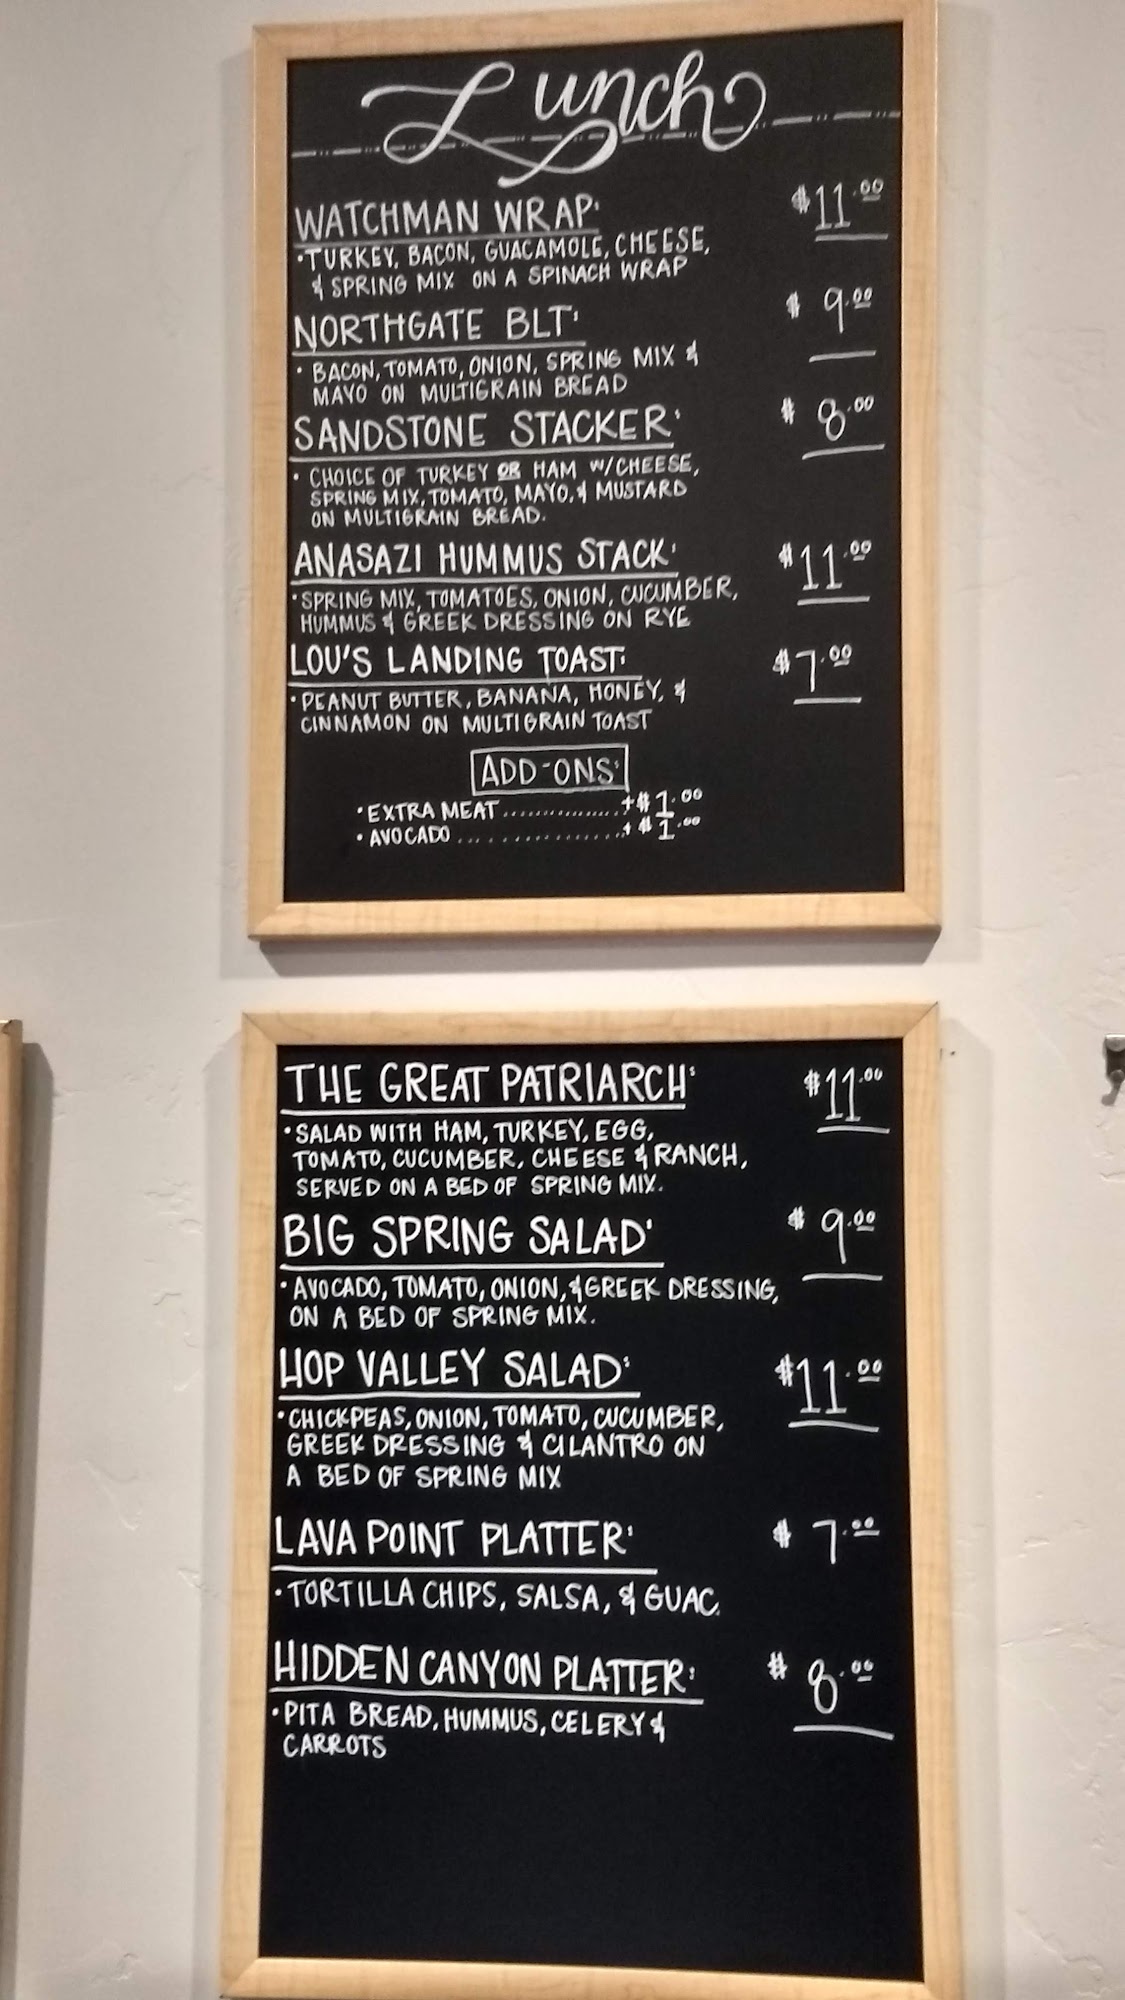 Lunch
WATCHMAN WRAP: $11.00
• TURKEY, BACON, GUACAMOLE, CHEESE,
& SPRING MIX ON A SPINACH WRAP
NORTHGATE BLT: $9.00
• BACON, TOMATO, ONION, SPRING MIX &
MAYO ON MULTIGRAIN BREAD
SANDSTONE STACKER: $8.00
• CHOICE OF TURKEY OR HAM W/CHEESE,
SPRING MIX, TOMATO, MAYO, & MUSTARD
ON MULTIGRAIN BREAD.
ANASAZI HUMMUS STACK: $11.00
• SPRING MIX, TOMATOES, ONION, CUCUMBER,
HUMMUS & GREEK DRESSING ON RYE
LOU'S LANDING TOAST: $7.00
• PEANUT BUTTER, BANANA, HONEY, &
CINNAMON ON MULTIGRAIN TOAST
ADD-ONS:
• EXTRA MEAT .............. +$1.00
• AVOCADO .................. +$1.00
THE GREAT PATRIARCH: $11.00
• SALAD WITH HAM, TURKEY, EGG,
TOMATO, CUCUMBER, CHEESE & RANCH,
SERVED ON A BED OF SPRING MIX.
BIG SPRING SALAD: $9.00
• AVOCADO, TOMATO, ONION, & GREEK DRESSING,
ON A BED OF SPRING MIX.
HOP VALLEY SALAD: $11.00
• CHICKPEAS, ONION, TOMATO, CUCUMBER,
GREEK DRESSING & CILANTRO ON
A BED OF SPRING MIX
LAVA POINT PLATTER: $7.00
• TORTILLA CHIPS, SALSA, & GUAC.
HIDDEN CANYON PLATTER: $8.00
• PITA BREAD, HUMMUS, CELERY &
CARROTS